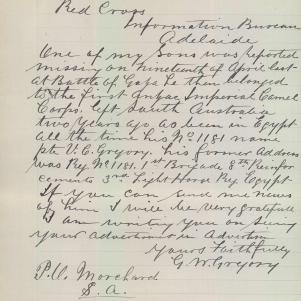 Red Cross
Information Bureau
Adelaide
One of my Sons was reported
missing on nineteenth of April last
at Battle of Gaza he then belonged
to the First Anzac Imperial Camel
Corps. left South Australia
two years ago as been in Egypt
all the time his No 1181 name
pte V. C. Gregory, his former Address
was Reg No 1181. 1st Brigade 8th Reinfor
cements 3rd Light Horse Reg Egypt
If you can send me news
of him I will be very gratefull
I am writing you on seeing
your advertisment in Advertiser
Yours Faithfully
G. W. Gregory
P.O. Morchard
S. A.